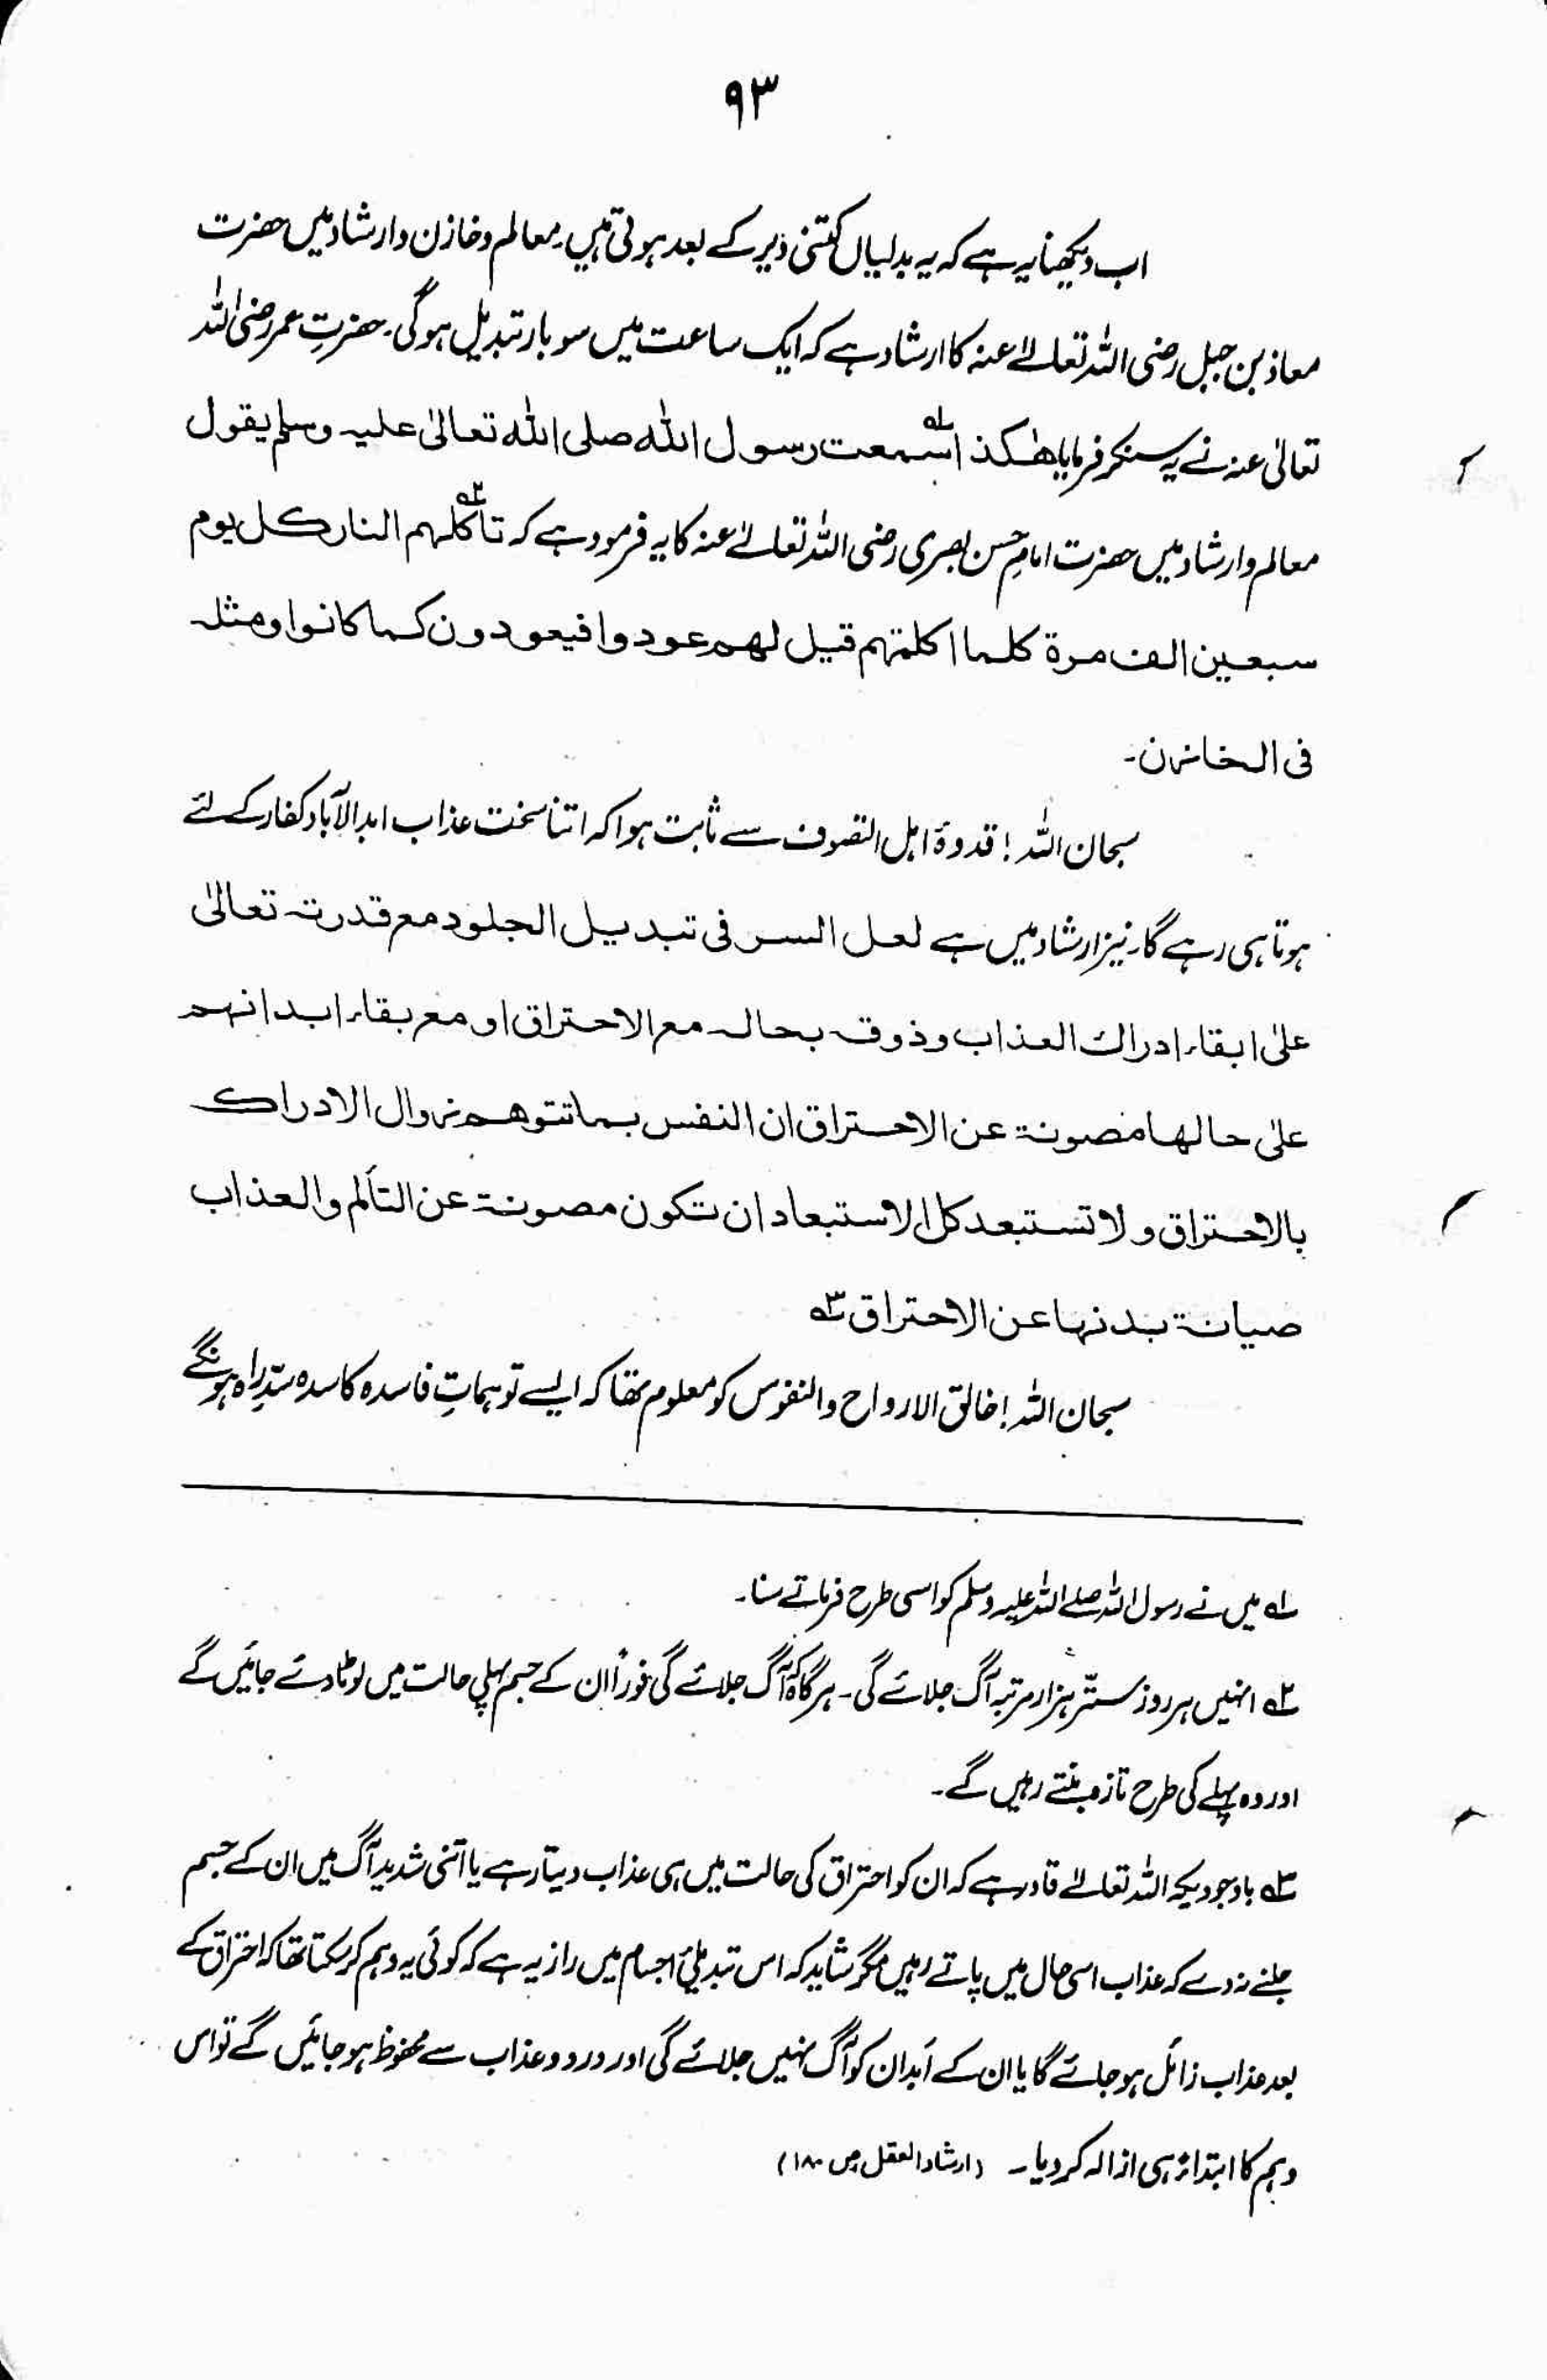 ۹۳
اب دیکھنا یہ ہے کہ یہ بدلیاں کتنی دیر کے بعد ہوتی ہیں۔ معالم و خازن و ارشاد میں حضرت
معاذ بن جبل رضی اللہ تعالےٰ عنہ کا ارشاد ہے کہ ایک ساعت میں سو بار تبدیل ہوگی۔ حضرتِ عمر رضی اللہ
تعالیٰ عنہ نے یہ سنکر فرمایا ھٰکذا ۱؎ سمعت رسول اللہ صلی اللہ تعالیٰ علیہ وسلم یقول
معالم و ارشاد میں حضرت امامِ حسن بصری رضی اللہ تعالےٰ عنہ کا یہ فرمودہے کہ تأکلہم ۲؎ النار کل یوم
سبعین الف مرۃ کلما اکلتہم قیل لھم عودوا فیعودون کما کانوا ومثلہ
فی الخازن۔
سبحان اللہ! قدوۂ اہل التصوف سے ثابت ہوا کہ اتنا سخت عذاب ابد الآباد کفار کے لئے
ہوتا ہی رہے گا۔ نیز ارشاد میں ہے لعل السر فی تبدیل الجلود مع قدرتہ تعالیٰ
علیٰ ابقاء ادراك العذاب وذوقہ بحالہ مع الاحتراق او مع بقاء ابدانہم
علیٰ حالھا مصونۃ عن الاحتراق ان النفس بما تتوھم زوال الادراك
بالاحتراق ولا تستبعد کل الاستبعاد ان تکون مصونۃ عن التألم والعذاب
صیانۃ بدنھا عن الاحتراق ۳؎
سبحان اللہ! خالق الارواح والنفوس کو معلوم تھا کہ ایسے توہماتِ فاسدہ کاسدہ سدِّراہ ہونگے
۱؎ میں نے رسول اللہ صلے اللہ علیہ وسلم کو اسی طرح فرماتے سنا۔
۲؎ انہیں ہر روز ستّر ہزار مرتبہ آگ جلائے گی۔ ہرگاہ کہ آگ جلائے گی فوراً ان کے جسم پہلی حالت میں لوٹا دئے جائیں گے
اور وہ پہلے کی طرح تازہ بنتے رہیں گے۔
۳؎ باوجودیکہ اللہ تعالےٰ قادر ہے کہ ان کو احتراق کی حالت میں ہی عذاب دیتا رہے یا اتنی شدید آگ میں ان کے جسم
جلنے نہ دے کہ عذاب اسی حال میں پاتے رہیں مگر شاید کہ اس تبدیلیٔ اجسام میں راز یہ ہے کہ کوئی یہ وہم کر سکتا تھا کہ احتراق کے
بعد عذاب زائل ہو جائے گا یا ان کے اَبدان کو آگ نہیں جلائے گی اور درد و عذاب سے محفوظ ہو جائیں گے تو اس
وہم کا ابتداءً ہی ازالہ کر دیا۔ (ارشاد العقل ص ۱۸۰)